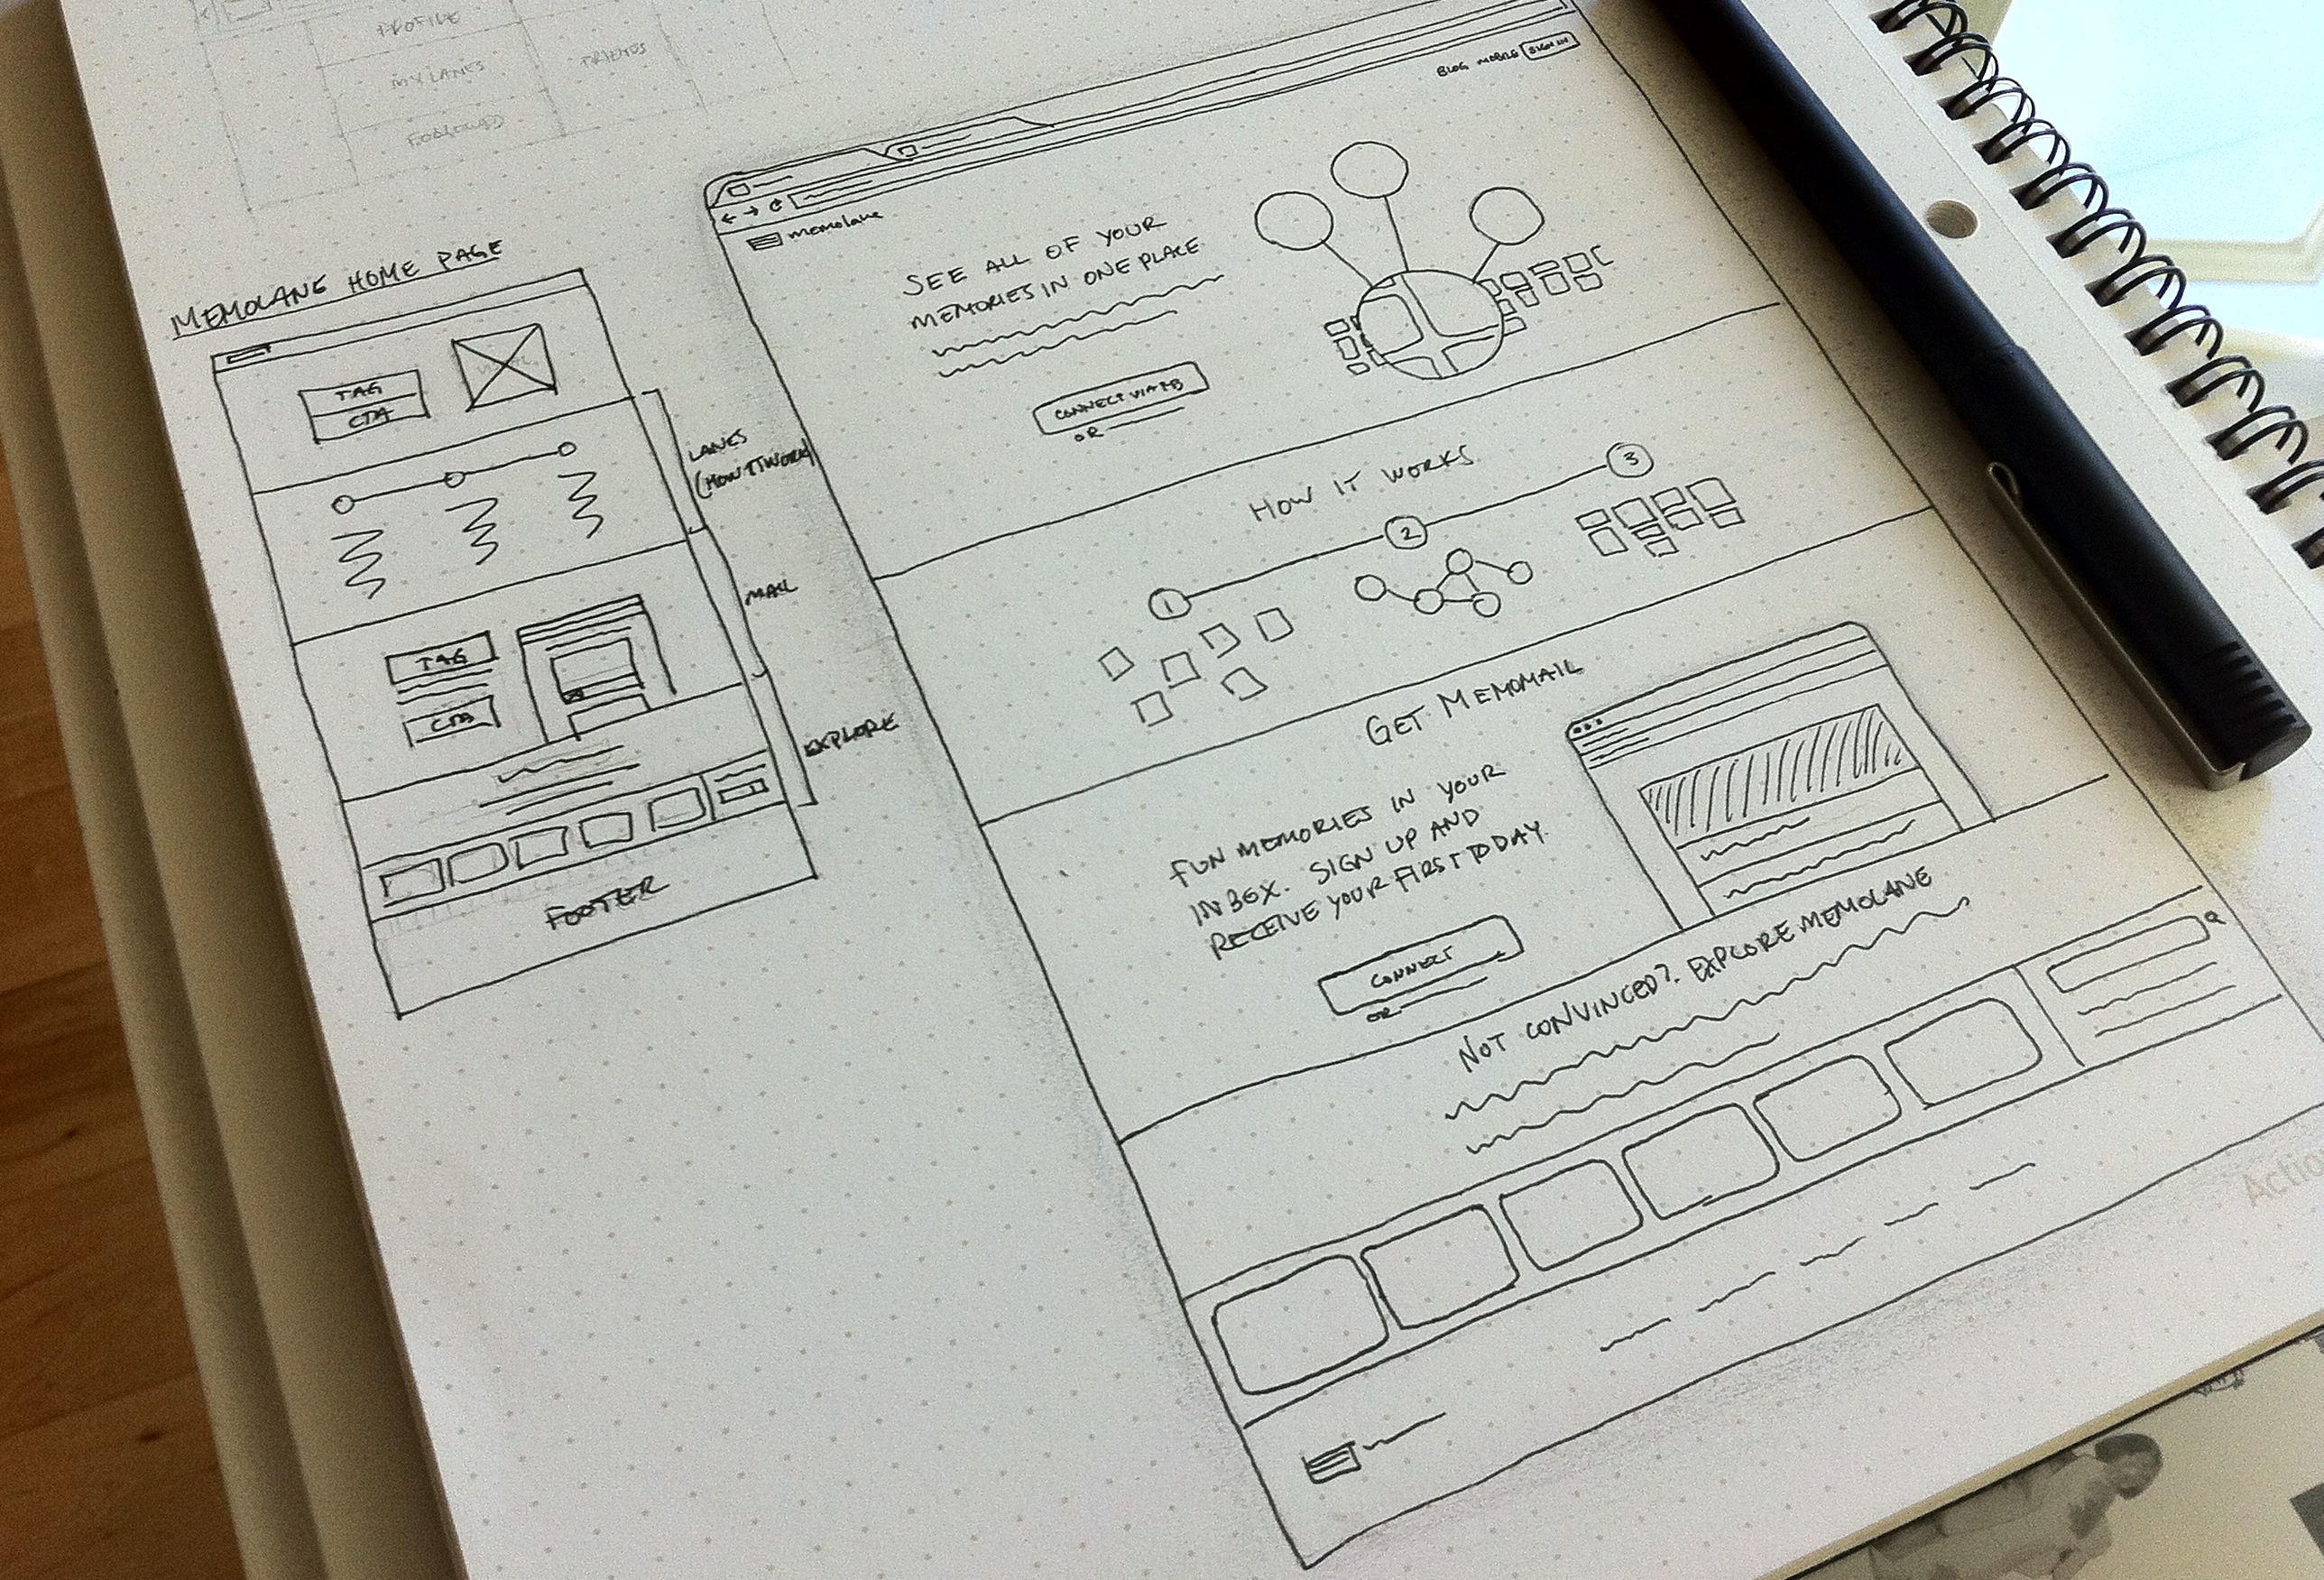 PROFILE
MY LANES
FRIENDS
MEMOLANE HOME PAGE
TAG
CTA
LANES
(HOW IT WORK)
MAIL
TAG
CTA
EXPLORE
FOOTER
BLOG MOBILE SIGN IN
memolane
SEE ALL OF YOUR
MEMORIES IN ONE PLACE
CONNECT VIA FB
OR
HOW IT WORKS
1
2
3
GET MEMOMAIL
FUN MEMORIES IN YOUR
INBOX. SIGN UP AND
RECEIVE YOUR FIRST TODAY.
CONNECT
OR
NOT CONVINCED? EXPLORE MEMOLANE
Actio